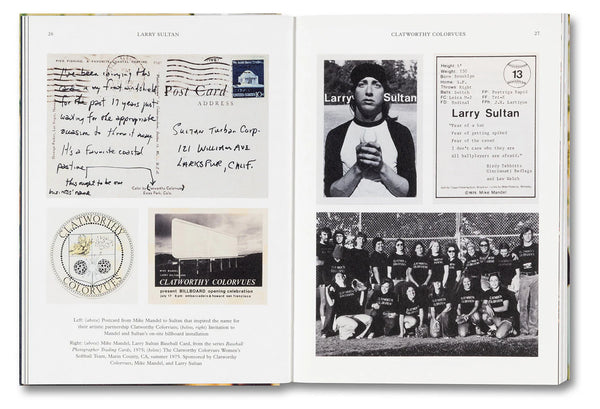 26
LARRY SULTAN
PIER FISHING
I've been saving this
card in my front windshield
for the past 17 years just
waiting for the appropriate
occasion to throw it away.
It's a favorite coastal
pastime
this ought to be our
business' name
Post Card
ADDRESS
10c
Sultan Turban Corp.
121 William Ave
Larkspur, Calif.
Color by Clatworthy Colorvues
CLATWORTHY
COLORVUES
MIKE MANDEL
LARRY SULTAN
CLATWORTHY COLORVUES
present BILLBOARD opening celebration
july 17 6 pm embarcadero & howard san francisco
Left: (above) Postcard from Mike Mandel to Sultan that inspired the name for
their artistic partnership Clatworthy Colorvues; (below, right) Invitation to
Mandel and Sultan's on-site billboard installation
Right: (above) Mike Mandel, Larry Sultan Baseball Card, from the series Baseball
Photographer Trading Cards, 1975; (below) The Clatworthy Colorvues Women's
Softball Team, Marin County, CA, summer 1975. Sponsored by Clatworthy
Colorvues, Mike Mandel, and Larry Sultan
CLATWORTHY COLORVUES
27
Larry Sultan
Height 6'
Weight 150
Born Brooklyn
Home S.F.
Throws Right
Bats Switch
FC Leica
FD Rodinal
FP: Portriga Rapid
FF: Tri-X
FPh: J.H. Lartigue
13
Larry Sultan
"Fear of a bat
Fear of getting spiked
Fear of the crowd
I don't care who they are
all ballplayers are afraid."
Birdy Tebbetts
Cincinnati Redlegs
and Lew Welch
©1975 Mike Mandel